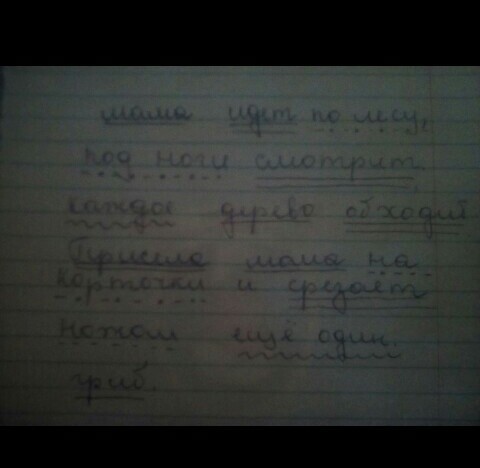 мама идёт по лесу,
под ноги смотрит
каждое дерево обходит
Присела мама на
корточки и срезает
ножом ещё один
гриб.